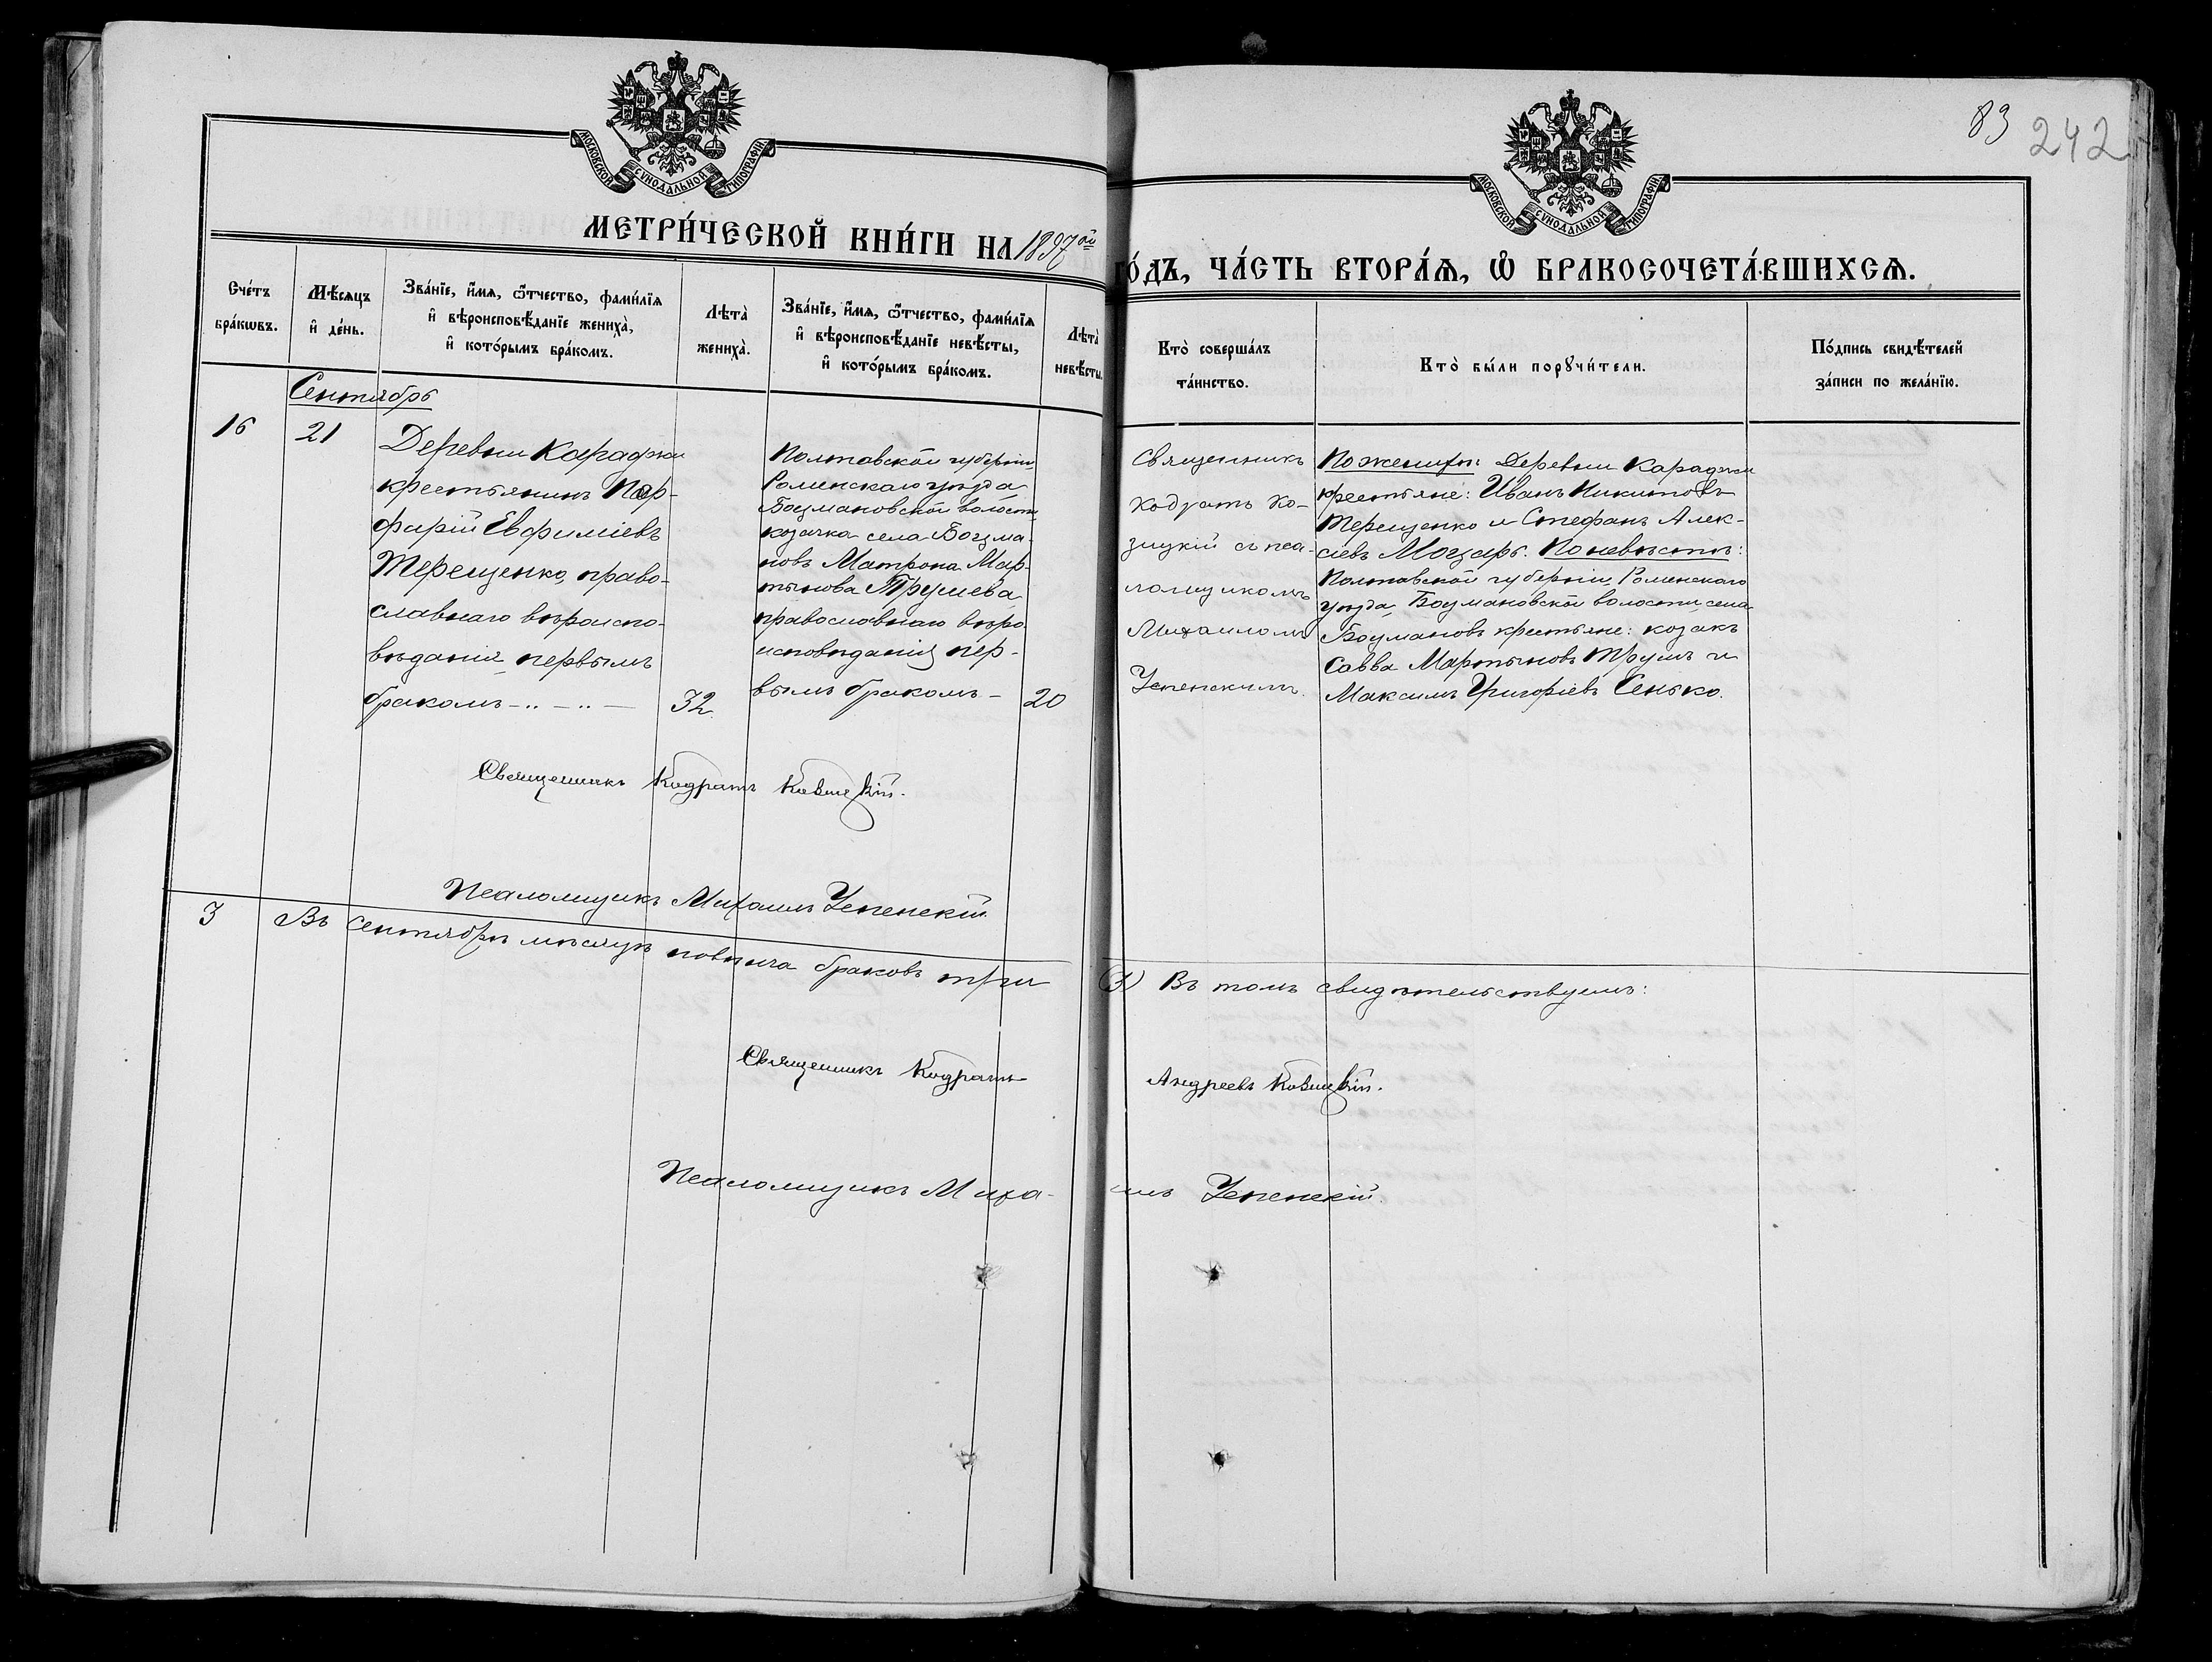 83 242
МОСКОВСКОЙ СѴНОДАЛЬНОЙ ТИПОГРАФІИ
МОСКОВСКОЙ СѴНОДАЛЬНОЙ ТИПОГРАФІИ
МЕТРИ́ЧЕСКОЙ КНИ́ГИ НА 1897ой
ГО́ДЪ, ЧА́СТЬ ВТОРА́Ѧ, Ѽ БРАКОСОЧЕТА́ВШИХСѦ.
Сче́тъ
бра́кѡвъ.
Мѣ́сѧцъ
и҆ де́нь.
Зва́нїе, и҆́мѧ, ѻ҆́тчество, фами́лїѧ
и҆ вѣроисповѣ́данїе жениха̀,
и҆ кото́рымъ бра́комъ.
Лѣта̀
жениха̀.
Зва́нїе, и҆́мѧ, ѻ҆́тчество, фами́лїѧ
и҆ вѣроисповѣ́данїе невѣ́сты,
и҆ кото́рымъ бра́комъ.
Лѣта̀
невѣ́сты.
Кто̀ соверша́лъ
та́инство.
Кто̀ бы́ли порꙋчи́тели.
По́дпись свидѣ́телей
за́писи по жела́нїю.
Сентябрь
16
21
Деревни Караджи
крестьянинъ Пор-
фирій Евфиміевъ
Терещенко, право-
славнаго вѣроиспо-
вѣданія, первымъ
бракомъ
32.
Полтавской губерніи
Роменскаго уѣзда
волости
козачка села
Матрона Мар-
тынова
православнаго вѣро
исповѣданія пер-
вымъ бракомъ
20
Священникъ
Кодратъ Ко-
зицкій съ пса-
ломщикомъ
Михаиломъ
Успенскимъ.
По женихѣ: Деревни Караджи
крестьяне: Иванъ Никитовъ
Терещенко и Стефанъ Алек-
сіевъ Моцарь. По невѣстѣ:
Полтавской губерніи, Роменскаго
уѣзда, волости села
крестьяне: козакъ
Савва Мартыновъ и
Максимъ Григоріевъ Сенько.
Священникъ Кодратъ Козицкій.
Псаломщикъ Михаилъ Успенскій
3 Въ сентябрѣ мѣсяцѣ повѣнча браковъ три
(3) Въ томъ свидѣтельствуемъ:
Священникъ Кодратъ Андреевъ Козицкій.
Псаломщикъ Миха-илъ Успенскій.